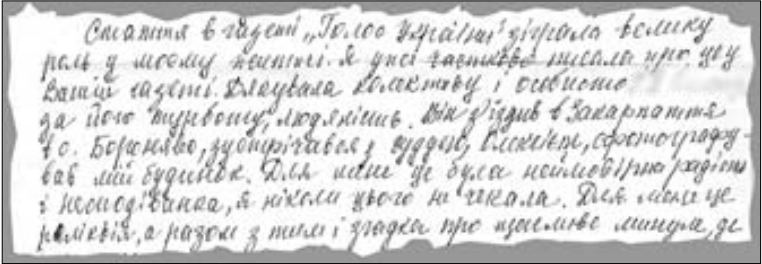 Стаття в газеті „Голос України” зіграла велику
роль у моєму житті. Я уже частково писала про це у
Вашій газеті. Дякувала колективу і особисто
за його турботу, людяність. Він з'їздив в Закарпаття
в с. Бороняво, зустрічався з суддею, сфотографу-
вав мій будинок. Для мене це була неймовірна радість
і несподіванка, я ніколи цього не чекала. Для мене це
реліквія, а разом з тим і згадка про щасливе минуле, де